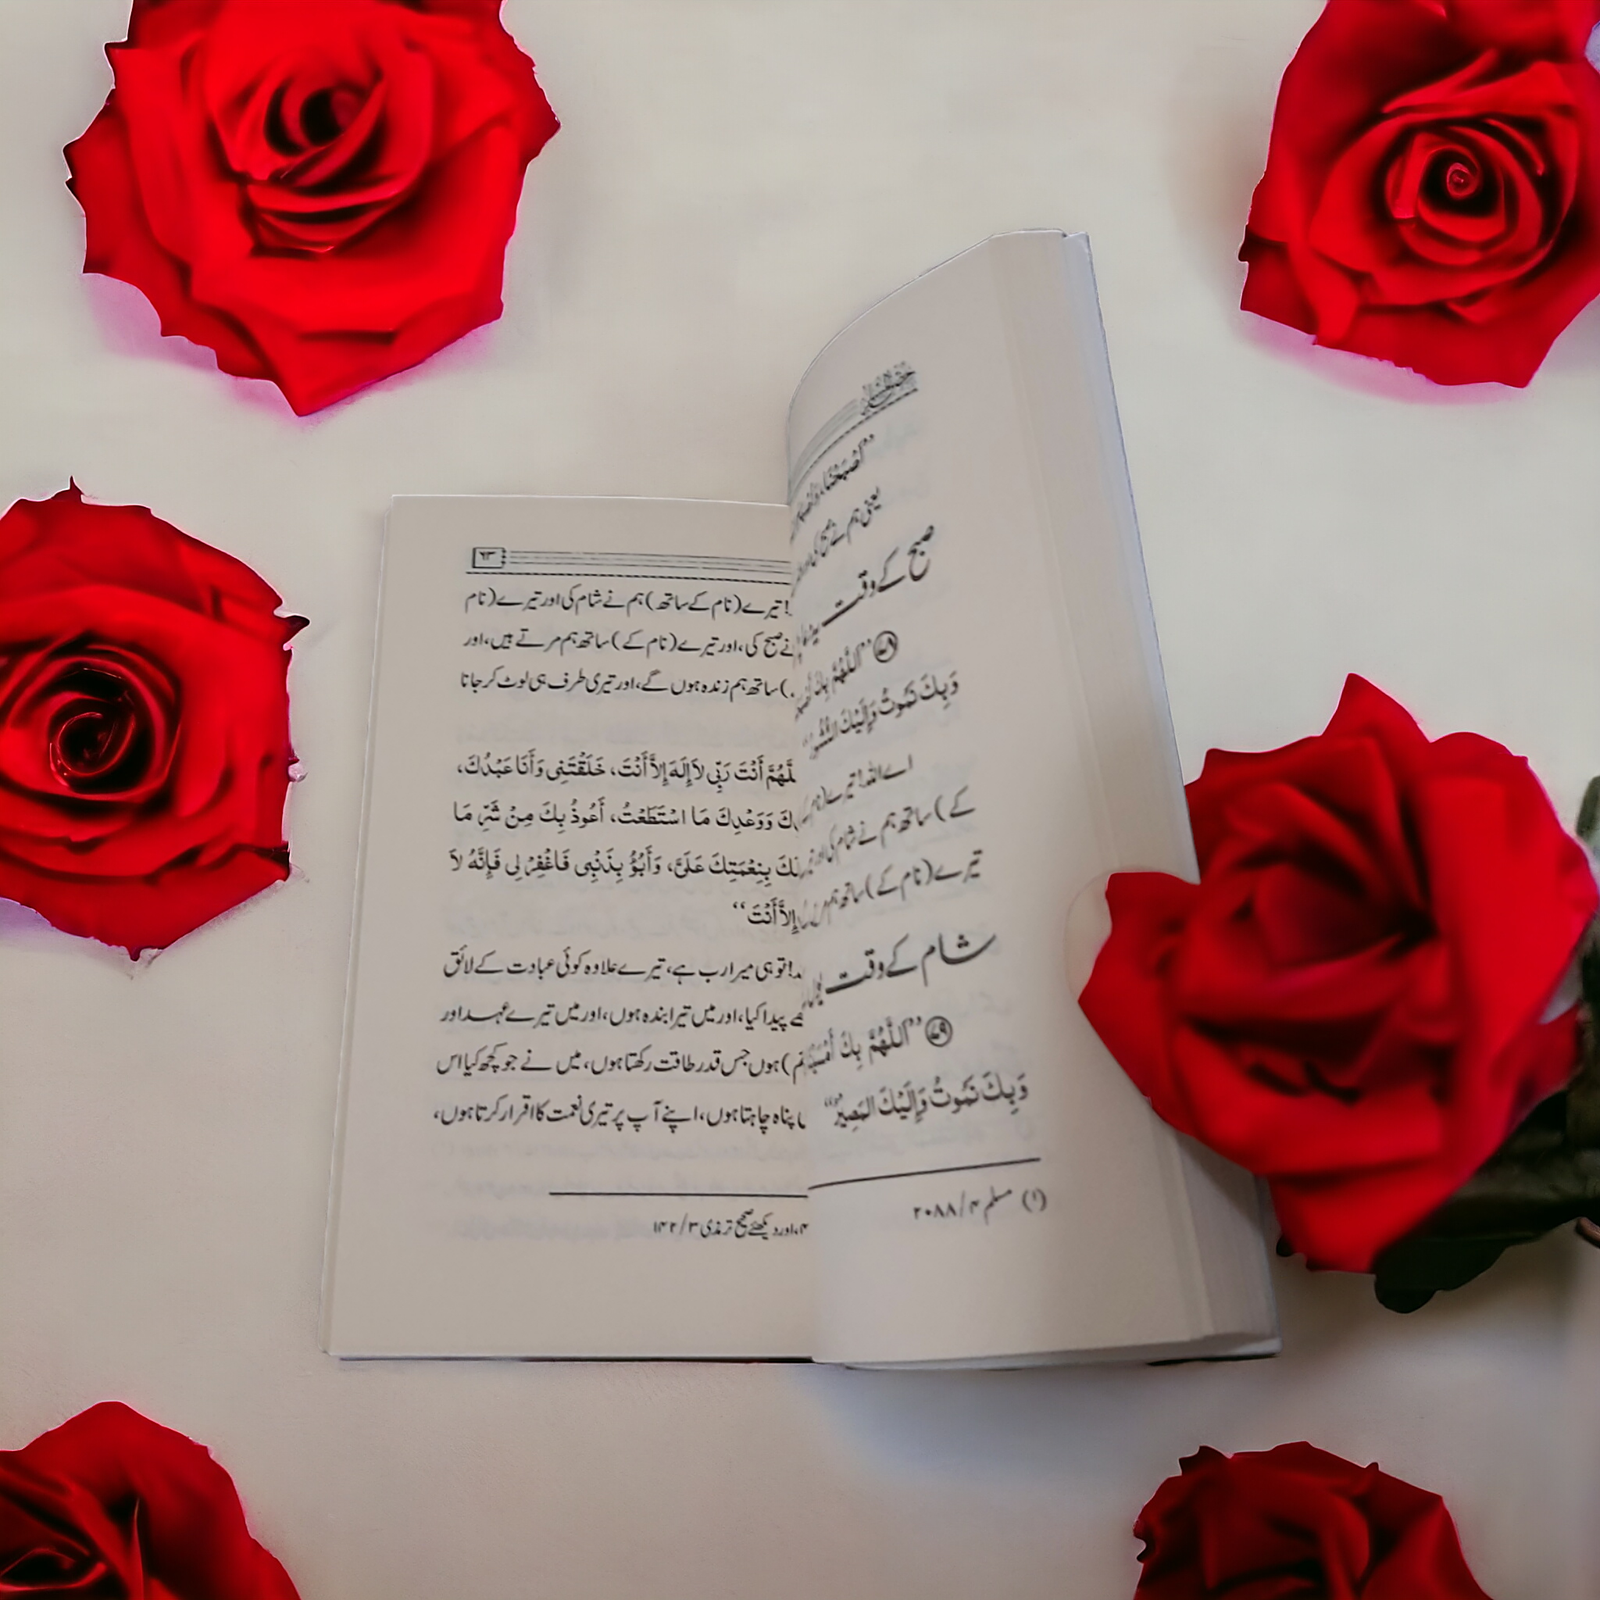 "أَصْبَحْنَا
یعنی ہم نے صبح کی
صبح کے وقت
۷۸ "اَللّٰهُمَّ بِكَ
وَبِكَ نَمُوتُ وَإِلَيْكَ النُّشُورُ"
اے اللہ! تیرے (نام
کے) ساتھ ہم نے شام کی اور
تیرے (نام کے) ساتھ ہم
شام کے وقت
۷۹ "اَللّٰهُمَّ بِكَ
وَبِكَ نَمُوتُ وَإِلَيْكَ المَصِيْرُ"
(۱) مسلم ۴/۲۰۸۸
۷۳
! تیرے (نام کے ساتھ) ہم نے شام کی اور تیرے (نام
نے صبح کی، اور تیرے (نام کے) ساتھ ہم مرتے ہیں، اور
) ساتھ ہم زندہ ہوں گے، اور تیری طرف ہی لوٹ کر جانا
أَنْتَ رَبِّي لاَ إِلَهَ إِلاَّ أَنْتَ، خَلَقْتَنِي وَأَنَا عَبْدُكَ،
وَوَعْدِكَ مَا اسْتَطَعْتُ، أَعُوذُ بِكَ مِنْ شَرِّ مَا
بِنِعْمَتِكَ عَلَيَّ، وَأَبُوْءُ بِذَنْبِي فَاغْفِرْ لِي فَإِنَّهُ لاَ
إِلاَّ أَنْتَ"
! تو ہی میرا رب ہے، تیرے علاوہ کوئی عبادت کے لائق
پیدا کیا، اور میں تیرا بندہ ہوں، اور میں تیرے عہد اور
) ہوں جس قدر طاقت رکھتا ہوں، میں نے جو کچھ کیا اس
پناہ چاہتا ہوں، اپنے آپ پر تیری نعمت کا اقرار کرتا ہوں،
، اور دیکھئے صحیح ترمذی ۳/۱۴۲